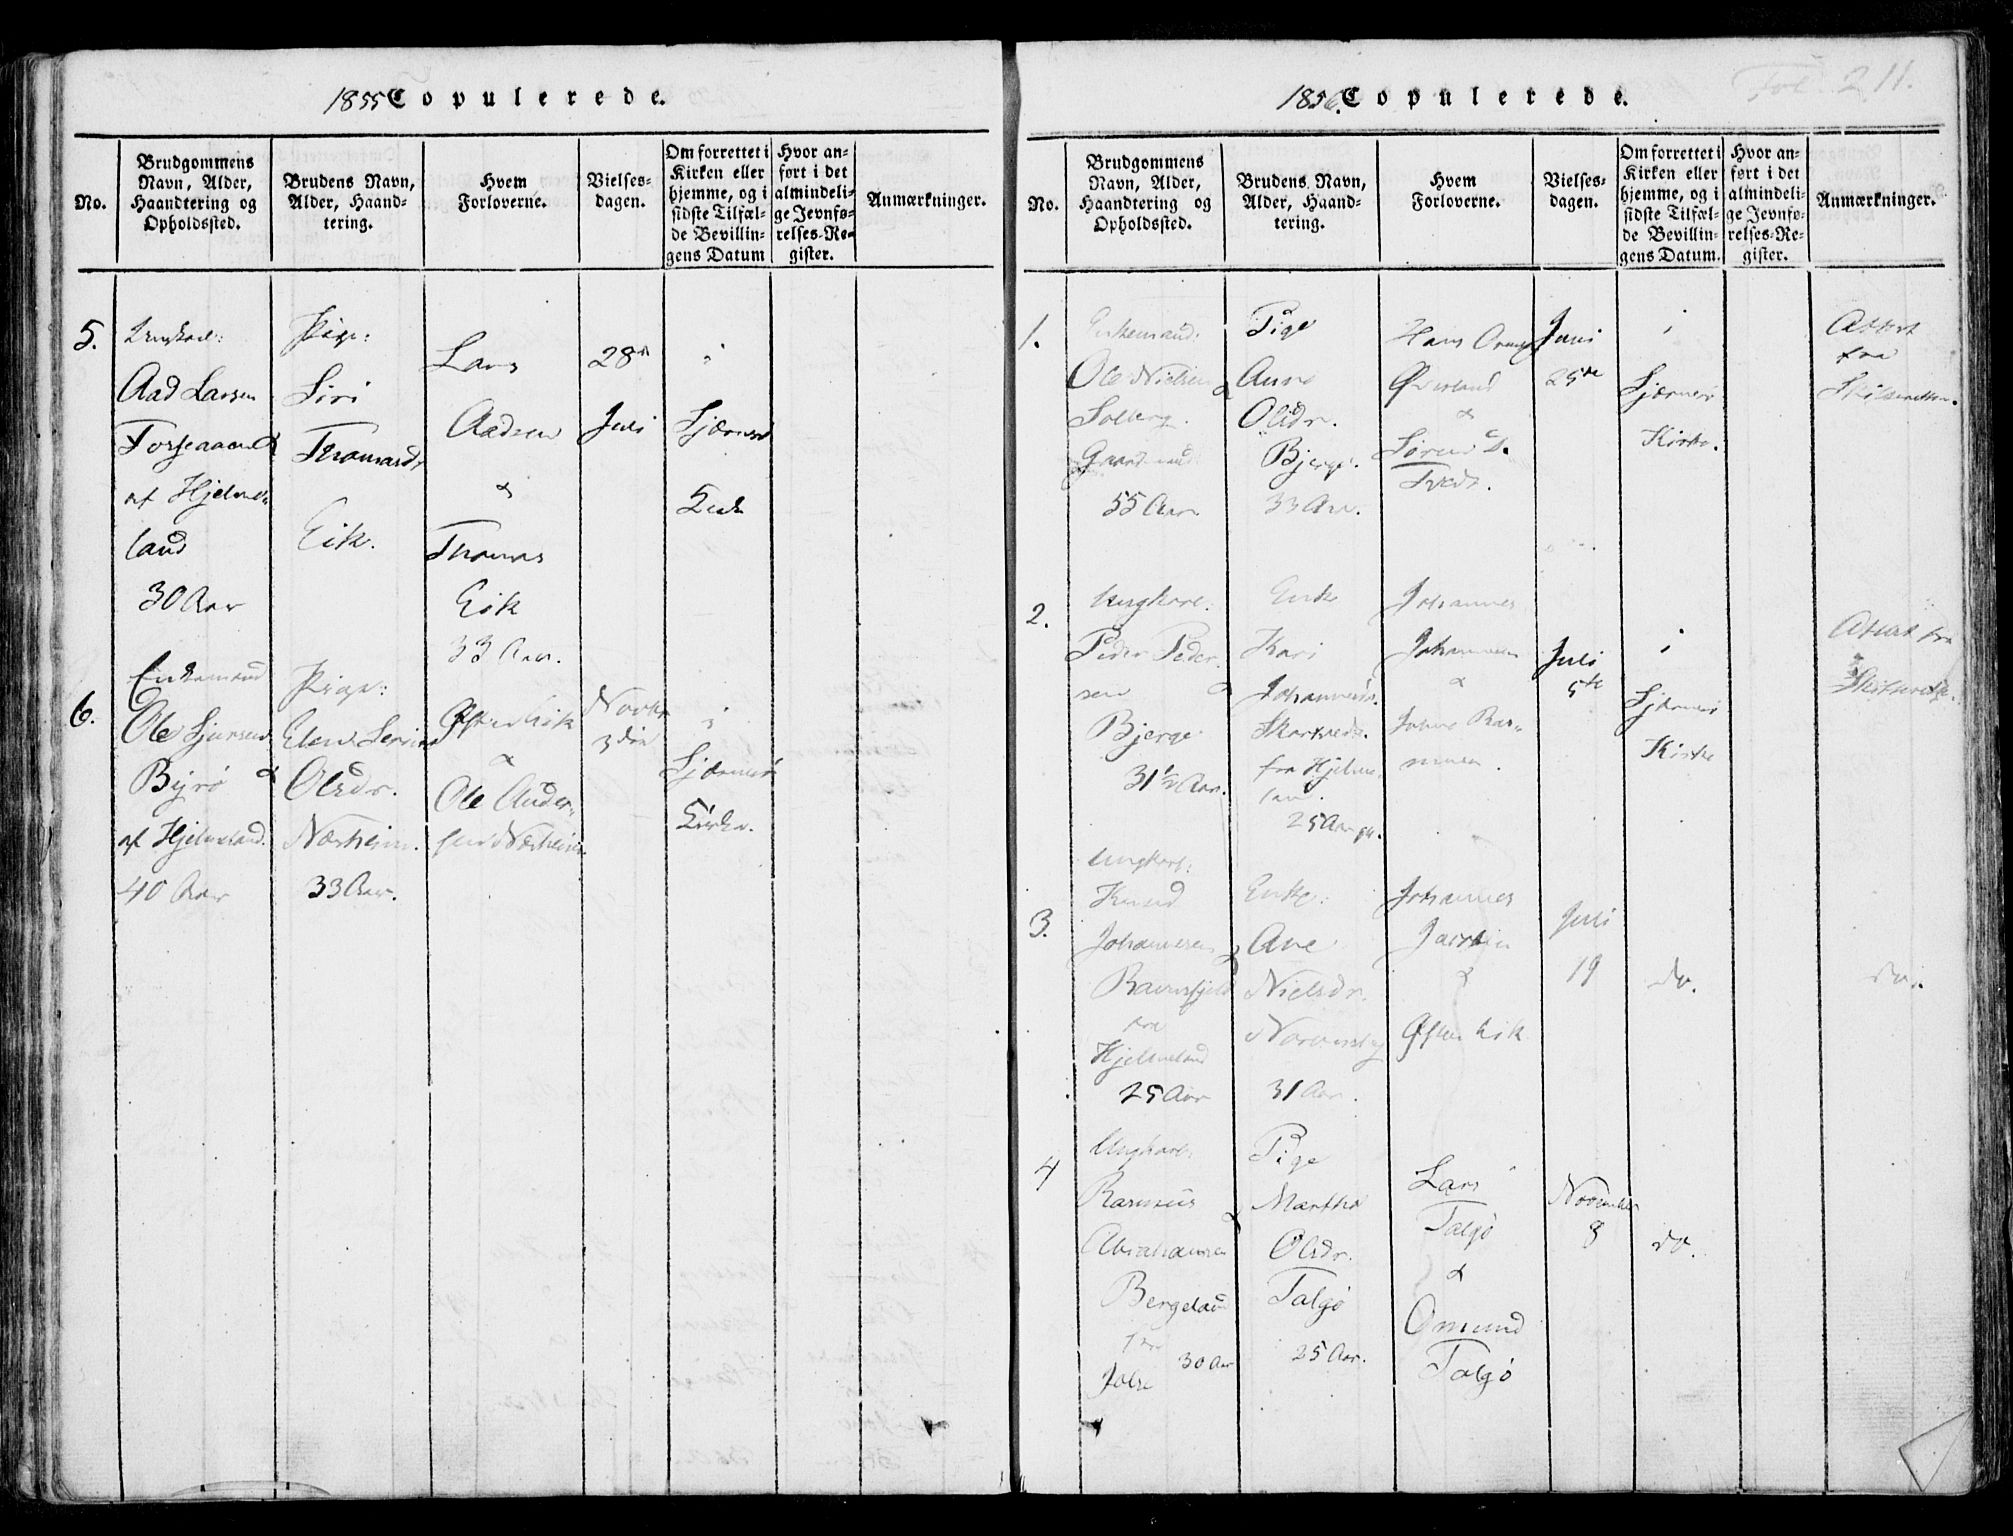 1855 Copulerede.
No.
Brudgommens
Navn, Alder,
Haandtering og
Opholdssted.
Brudens Navn,
Alder, Haand-
tering.
Hvem
Forloverne.
Vielses-
dagen.
Om forrettet i
Kirken eller
hjemme, og i
sidste Tilfæl-
de Bevillin-
gens Datum
Hvor an-
ført i det
almindeli-
ge Jevnfø-
relses-Re-
gister.
Anmærkninger.
5.
Ungkarl:
Aad Larsen
af Hjelme-
land
30 Aar
Pige:
Siri
Thomasdr
Eik.
Lars
Aadsen
&
Thomas
Eik
33 Aar.
28
Juli
i
Sjærnerø
6.
Enkemand
Ole Sjursen
Byrø &
af Hjelmeland.
40 Aar
Pige:
Olsdr.
Nærheim.
33 Aar.
Østen Eik
&
Ole Ander-
sen Nærheim
Novbr
3die
i
Sjærnerø
Kirke.
1856. Copulerede.
Fol. 211.
No.
Brudgommens
Navn, Alder,
Haandtering og
Opholdssted.
Brudens Navn,
Alder, Haand-
tering.
Hvem
Forloverne.
Vielses-
dagen.
Om forrettet i
Kirken eller
hjemme, og i
sidste Tilfæl-
de Bevillin-
gens Datum.
Hvor an-
ført i det
almindeli-
ge Jevnfø-
relses-Re-
gister.
Anmærkninger.
1.
Enkemand:
Ole Nielsen &
Solberg.
Gaardmand
55 Aar
Pige
Anne
Olsdr.
Bjerge.
33 Aar.
Hans
Øverland
&
Søren
Tvedt.
Juni
25de
i
Sjærnerø
Kirke.
Attest
fra
Skifteretten.
2.
Ungkarl:
Peder Peder-
sen &
Bjerge
31½ Aar.
Enke
Kari
Johannesd.
fra Hjelme-
land.
25 Aar gl.
Johannes
Johannesen
&
Johns Ras-
musen.
Juli
5te
i
Sjærnerø
Kirke
Attest fra
Skifteretten.
3.
Ungkarl:
Knud
Johannesen &
fra
Hjelmeland
25 Aar
Enke:
Ane
Nielsdr.
31 Aar.
Johannes
&
Østen Eik
Juli
19
do.
do.
4
Ungkarl:
Rasmus &
Abrahamsen
Bergeland
fra
Jølse 30 Aar
Pige
Martha
Olsdr.
Talgø
25 Aar.
Lars
Talgø
&
Omund
Talgø
November
8
do.